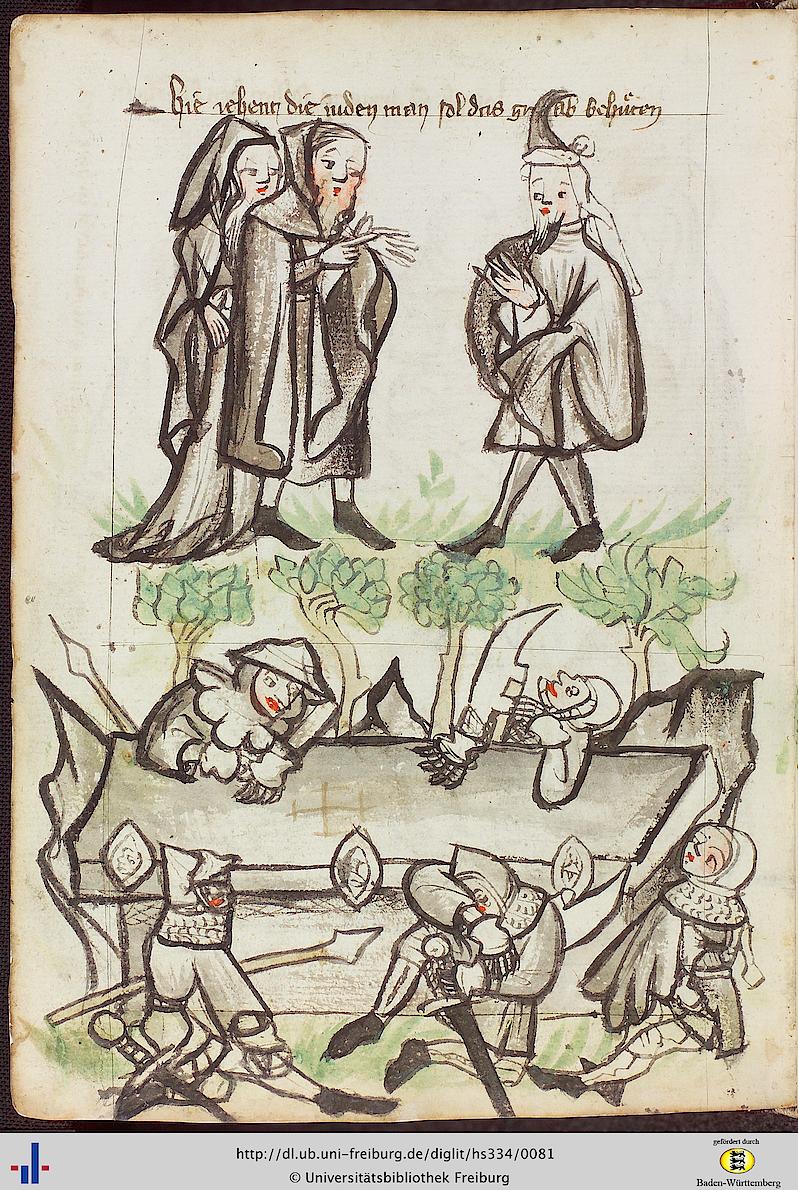 Hie iehent die iuden man sol das grab behuͤten
http://dl.ub.uni-freiburg.de/diglit/hs334/0081
© Universitätsbibliothek Freiburg
gefördert durch
Baden-Württemberg